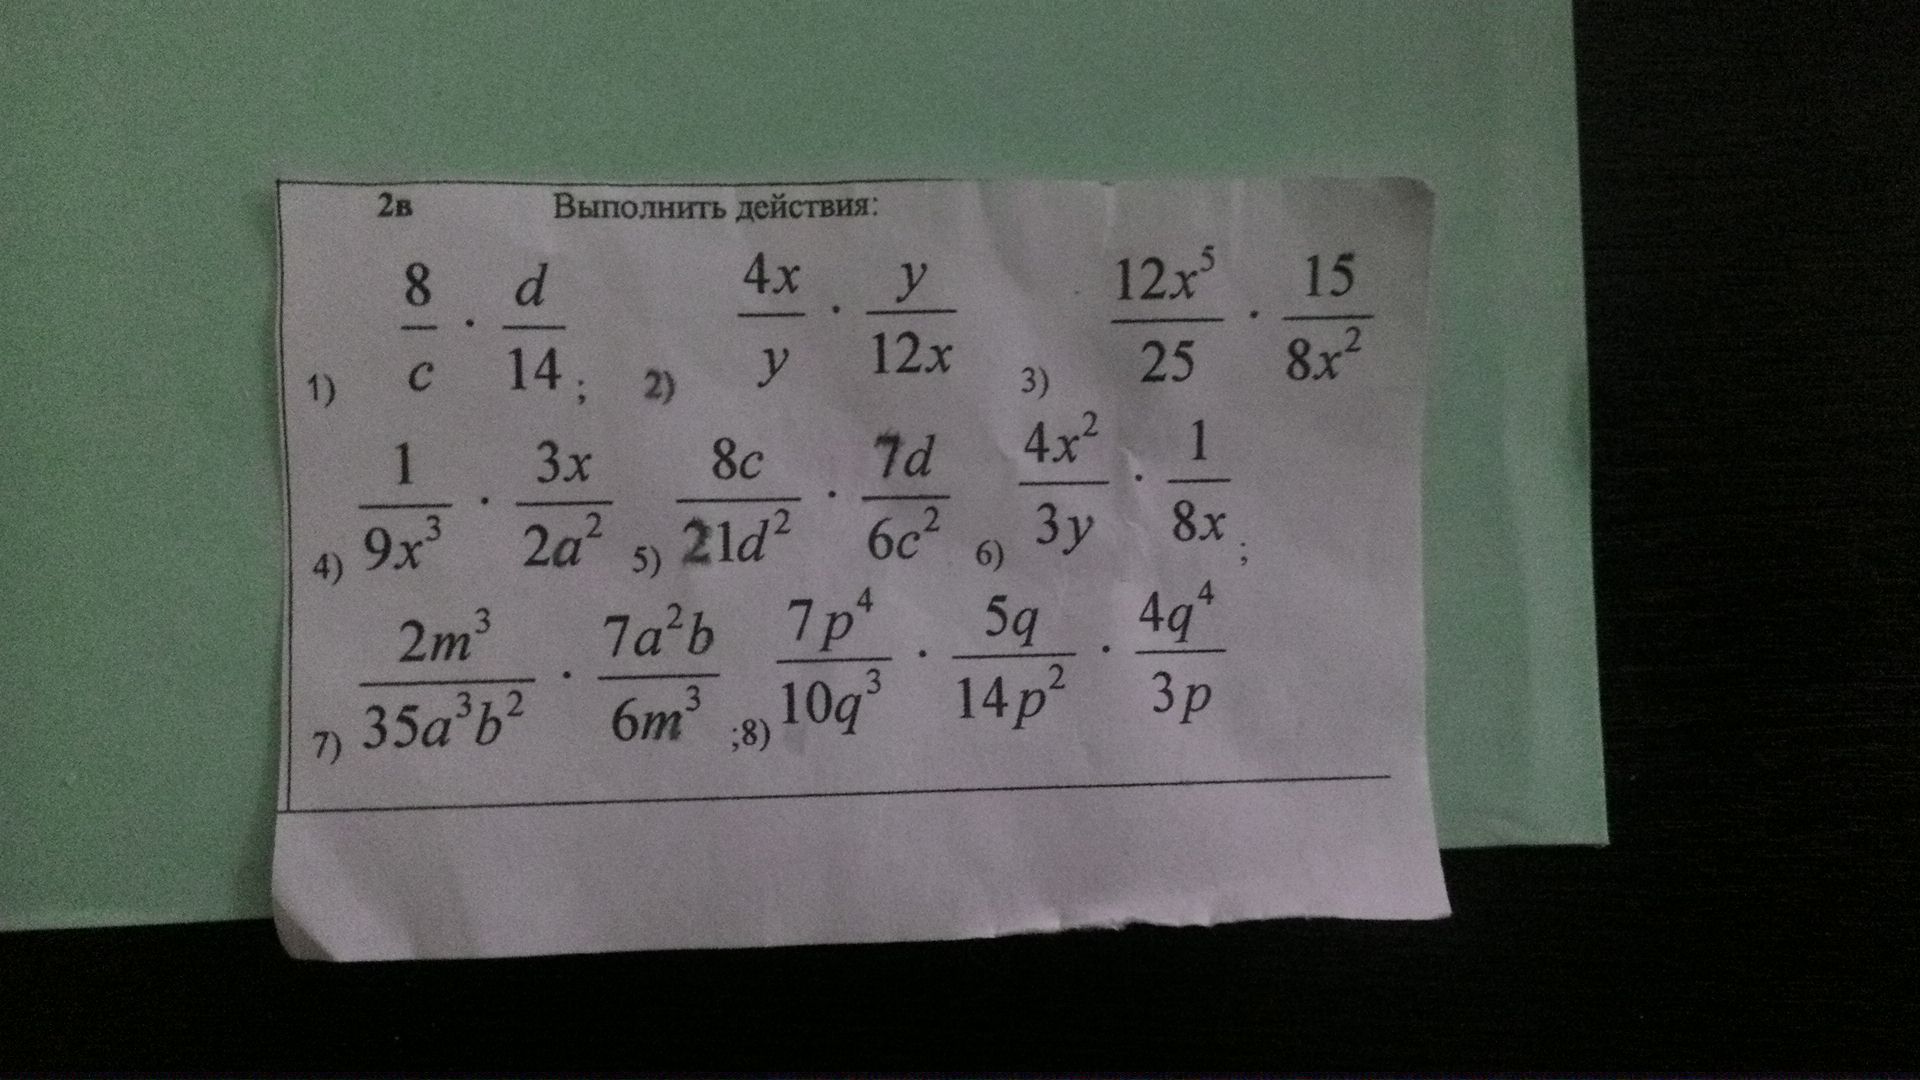 2в Выполнить действия:
1) \frac{8}{c} \cdot \frac{d}{14}; 2) \frac{4x}{y} \cdot \frac{y}{12x} 3) \frac{12x^5}{25} \cdot \frac{15}{8x^2}
4) \frac{1}{9x^3} \cdot \frac{3x}{2a^2} 5) \frac{8c}{21d^2} \cdot \frac{7d}{6c^2} 6) \frac{4x^2}{3y} \cdot \frac{1}{8x};
7) \frac{2m^3}{35a^3b^2} \cdot \frac{7a^2b}{6m^3} ;8) \frac{7p^4}{10q^3} \cdot \frac{5q}{14p^2} \cdot \frac{4q^4}{3p}